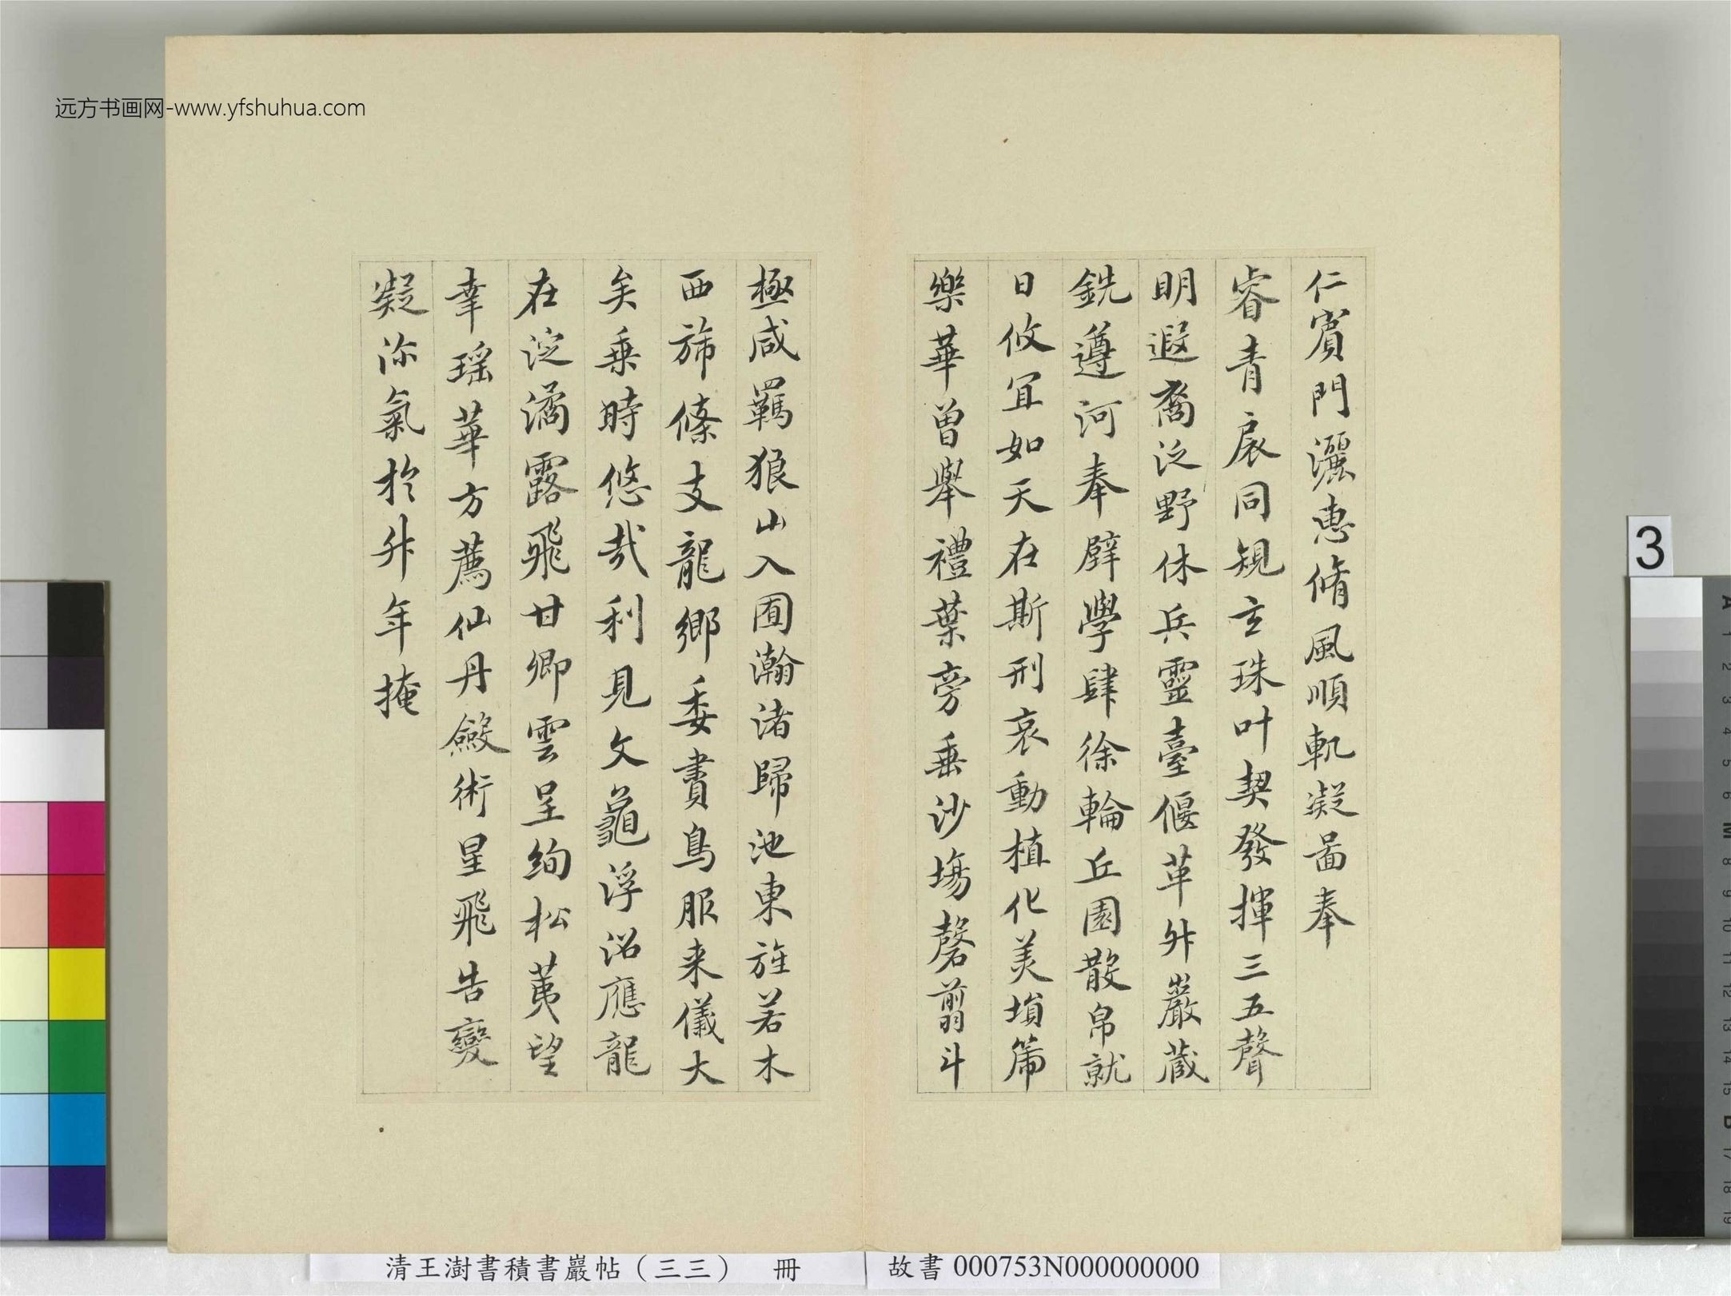 远方书画网-www.yfshuhua.com
仁賓門灑惠脩風順軓凝畐奉
睿青扆同規玄珠叶契發揮三五聲
明遐裔泛野休兵靈臺偃革升巖藏
銑遵河奉壁學肆徐輪丘園散帛就
日攸宜如天在斯刑哀動植化美塤篪
樂華曾舉禮葉旁垂沙塲罄翦斗
極咸羈狼山入囿瀚渚歸池東旌若木
西斾條支龍鄉委賮鳥服来儀大
矣乗時悠哉利見文龜浮沼應龍
在淀潏露飛甘卿雲呈絢松荑望
幸瑶華方薦仙丹斂術星飛告變
凝沵氣於升年掩
3
清王澍書積書巖帖（三三） 冊 故書 000753N000000000